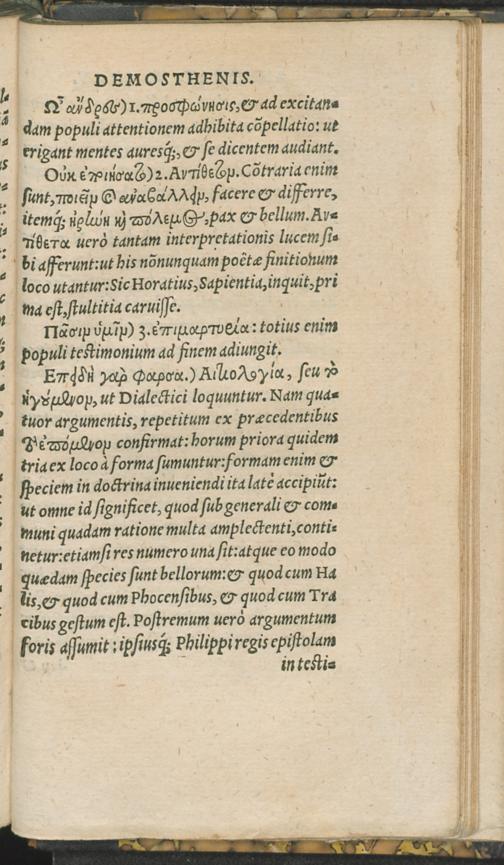 DEMOSTHENIS.
Ὦ ἄνδρες) 1. προσφώνησις, & ad excitan=
dam populi attentionem adhibita cõpellatio: ut
erigant mentes auresq́;, & se dicentem audiant.
Οὐκ ἐποιήσατο) 2. Αντίθετομ. Cõtraria enim
sunt, ποιεῖμ & ἀναβάλλειμ, facere & differre,
itemq́; εἰρήνη καὶ πόλεμος, pax & bellum. Αν=
τίθετα uerò tantam interpretationis lucem si=
bi afferunt: ut his nõnunquam poëtæ finitionum
loco utantur: Sic Horatius, Sapientia, inquit, pri
ma est, stultitia caruisse.
Πᾶσιμ ὑμῖμ) 3. ἐπιμαρτυρία: totius enim
populi testimonium ad finem adiungit.
Επειδὴ γὰρ φαρσα.) Αἰτιολογία, seu τὸ
ἡγούμενομ, ut Dialectici loquuntur. Nam qua=
tuor argumentis, repetitum ex præcedentibus
τὸ ἑπόμενομ confirmat: horum priora quidem
tria ex loco à forma sumuntur: formam enim &
speciem in doctrina inueniendi ita latè accipiũt:
ut omne id significet, quod sub generali & com=
muni quadam ratione multa amplectenti, conti=
netur: etiamsi res numero una sit: atque eo modo
quædam species sunt bellorum: & quod cum Ha
lis, & quod cum Phocensibus, & quod cum Tra
cibus gestum est. Postremum uerò argumentum
foris assumit; ipsiusq́; Philippi regis epistolam
in testi=